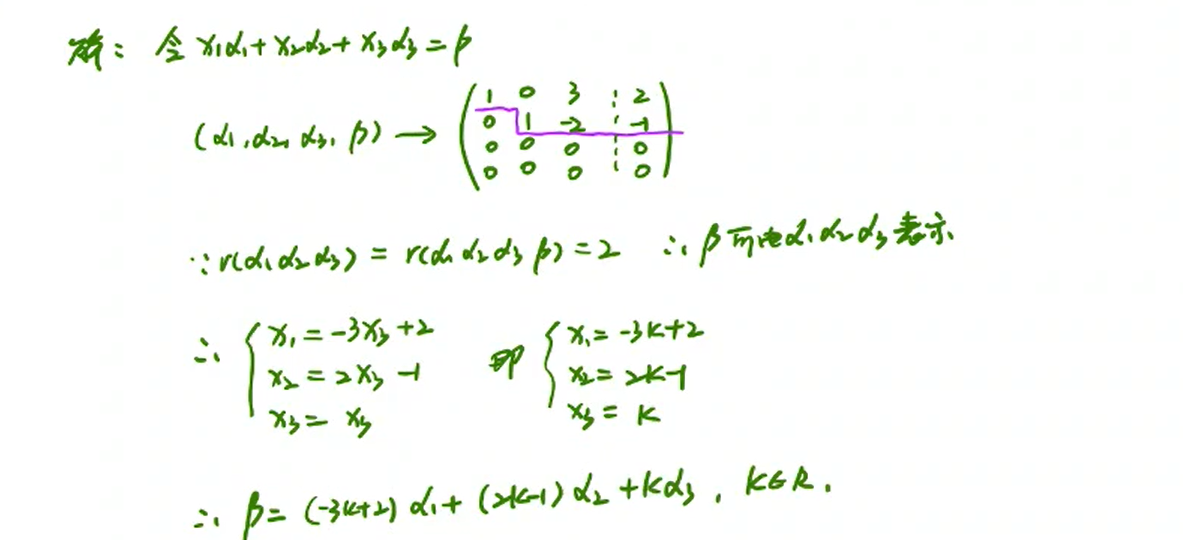 解：令 x₁α₁+x₂α₂+x₃α₃=β
(α₁,α₂,α₃,β) → ( 1 0 3 ⋮ 2
0 1 -2 ⋮ -1
0 0 0 ⋮ 0
0 0 0 ⋮ 0 )
∵ r(α₁α₂α₃) = r(α₁α₂α₃β) = 2 ∴ β可由α₁α₂α₃表示.
∴ { x₁=-3x₃+2 即 { x₁=-3k+2
x₂=2x₃-1 x₂=2k-1
x₃=x₃ x₃=k
∴ β=(-3k+2)α₁+(2k-1)α₂+kα₃, k∈R.